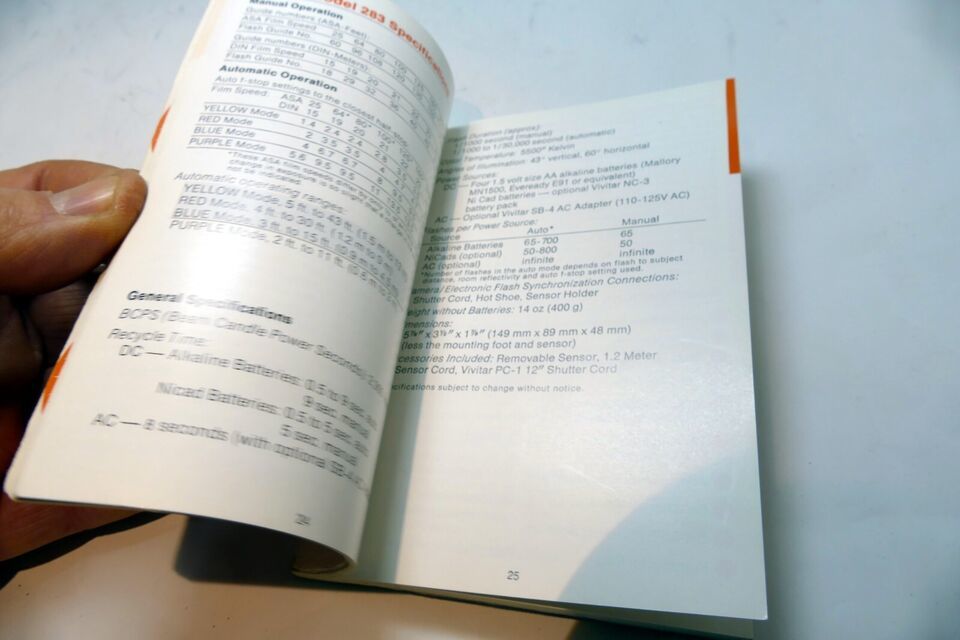 Model 283 Specifications
Manual Operation
Guide numbers (ASA-Feet):
ASA Film Speed 25 64 80
Flash Guide No. 60 96 108 120
Guide numbers (DIN-Meters):
DIN Film Speed 15 19 20 21
Flash Guide No. 18 29 32 36
Automatic Operation
Auto f-stop settings to the closest half stop
Film Speed: ASA 25 64* 80* 100
DIN 15 19 20 21
YELLOW Mode 1.4 2.4 2.4 2.8
RED Mode 2 3.5 3.5 4
BLUE Mode 4 6.7 6.7 8
PURPLE Mode 5.6 9.5 9.5 11
*These ASA film speeds
change in exposure is so
be indicated
Automatic operating ranges:
YELLOW Mode, 5 ft. to 43 ft. (1.5 m to
RED Mode, 4 ft. to 30 ft. (1.2 m to
BLUE Mode, 3 ft. to 15 ft.
PURPLE Mode, 2 ft. to 11 ft.
General Specifications
BCPS (Beam Candle Power Seconds)
Recycle Time:
DC — Alkaline Batteries: 0.5 to 9 sec. auto
9 sec. manual
Nicad Batteries: 0.5 to 5 sec. auto
5 sec. manual
AC — 8 seconds (with optional SB-4 AC
24
Duration (approx):
1000 second (manual)
1000 to 1/30,000 second (automatic)
Temperature: 5500° Kelvin
Angles of Illumination: 43° vertical, 60° horizontal
Power Sources:
DC — Four 1.5 volt size AA alkaline batteries (Mallory
MN1500, Eveready E91 or equivalent)
Ni Cad batteries — optional Vivitar NC-3
battery pack
AC — Optional Vivitar SB-4 AC Adapter (110-125V AC)
Flashes per Power Source:
Source Auto* Manual
Alkaline Batteries 65-700 65
NiCads (optional) 50-800 50
AC (optional) infinite infinite
*Number of flashes in the auto mode depends on flash to subject
distance, room reflectivity and auto f-stop setting used.
amera/Electronic Flash Synchronization Connections:
Shutter Cord, Hot Shoe, Sensor Holder
eight without Batteries: 14 oz (400 g)
mensions:
5⅞" x 3½" x 1⅞" (149 mm x 89 mm x 48 mm)
(less the mounting foot and sensor)
cessories Included: Removable Sensor, 1.2 Meter
Sensor Cord, Vivitar PC-1 12" Shutter Cord
ecifications subject to change without notice.
25